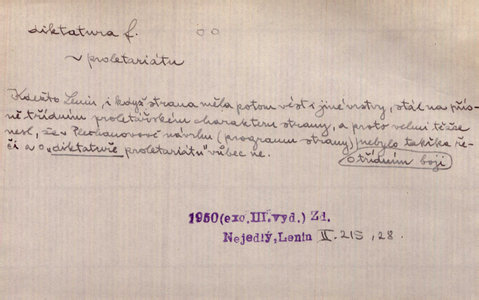 diktatura f.
~ proletariátu
Kdežto Lenin, i když strana měla potom vést i jiné vrstvy, stál na přís-
ně třídním proletářském charakteru strany, a proto velmi těžce
nesl, že v Plechanovově návrhu (programu strany) nebylo takřka ře-
či a o „diktatuře proletariátu" vůbec ne.
o třídním boji
1950 (exc. III. vyd.) Zd.
Nejedlý, Lenin II. 215, 28.